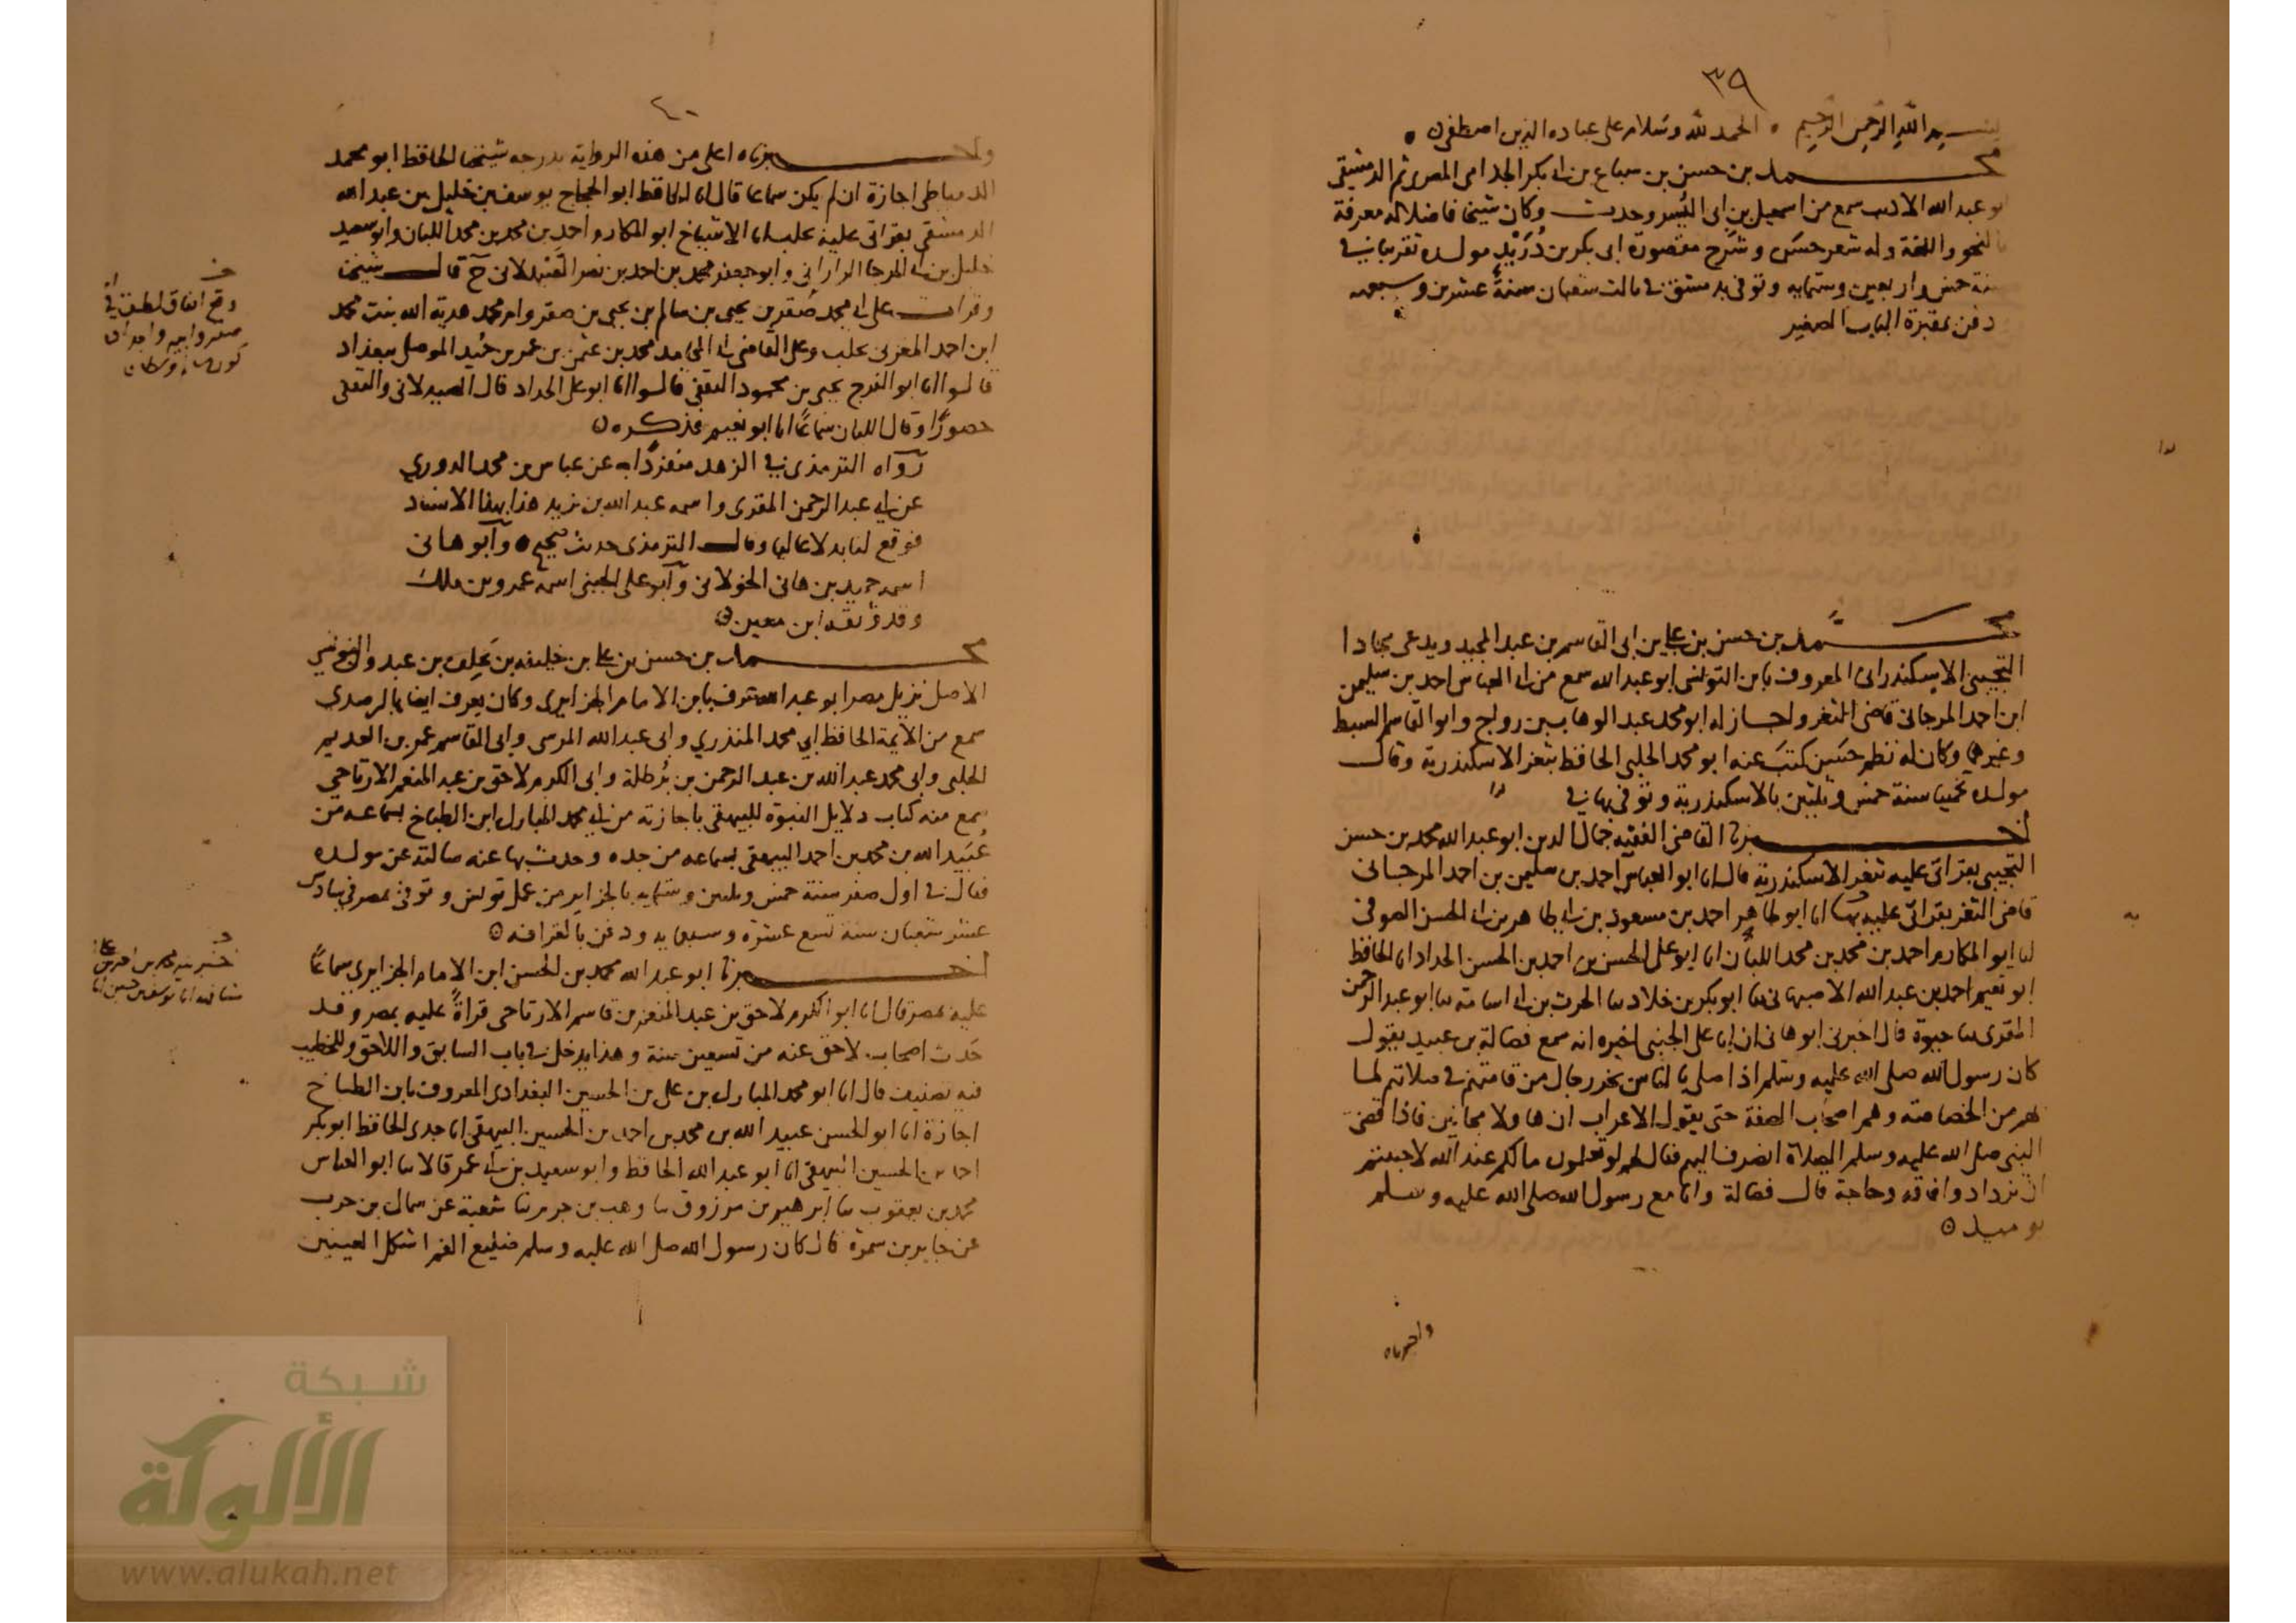 ٣٩
بسم الله الرحمن الرحيم الحمد لله وسلام على عباده الذين اصطفى
محمد بن حسن بن سباع بن ابي بكر الجذامى المصرى ثم الدمشقى
ابو عبد الله الاديب سمع من اسمعيل بن ابى اليُسر وحدث وكان شيخا فاضلا له معرفة
بالنحو واللغة وله شعر حسن وشرح مقصورة ابى بكر بن دُرَيْد مولده تقريبا فى
سنة خمس واربعين وستمايه وتوفى بدمشق فى ثالث شعبان سنة عشرين وسبعمايه
دفن بمقبرة الباب الصغير
محمد بن حسن بن على بن ابى القاسم بن عبد المجيد ويدعى
التجيبى الاسكندرانى المعروف بابن التونسى ابو عبد الله سمع من ابى العباس احمد بن سليمن
ابن احمد المرجانى قاضى الثغر واجاز له ابو محمد عبد الوهاب بن رواج وابو القاسم السبط
وغيرهما وكان له نظم حسن كتب عنه ابو محمد الحلبى الحافظ بثغر الاسكندرية وقال
مولده تخمينا سنة خمس وثلثين بالاسكندرية وتوفى بها فى
اخبرنا القاضى الفقيه جمال الدين ابو عبد الله محمد بن حسن
التجيبى بقراتى عليه بثغر الاسكندرية قال انا ابو العباس احمد بن سليمن بن احمد المرجانى
قاضى الثغر بقراتى عليه بها انا ابو طاهر احمد بن مسعود بن ابى طاهر بن ابى الحسن الصوفى
انا ابو المكارم احمد بن محمد بن محمد اللبان انا ابو على الحسن بن احمد بن الحسن الحداد انا الحافظ
ابو نعيم احمد بن عبد الله الاصبهانى ثنا ابو بكر بن خلاد ثنا الحرث بن ابى اسامة ثنا ابو عبد الرحمن
المقرى ثنا حيوة قال اخبرنى ابو هانى ان ابا على الجنبى اخبره انه سمع فضالة بن عبيد يقول
كان رسول الله صلى الله عليه وسلم اذا صلى بالناس يخر رجال من قامتهم فى صلاتهم لما
بهم من الخصاصة وهم اصحاب الصفة حتى يقول الاعراب ان هاولا مجانين فاذا قضى
النبى صلى الله عليه وسلم الصلاة انصرف اليهم فقال لهم لو تعلمون ما لكم عند الله لاحببتم
ان تزدادوا فاقه وحاجة قال فضالة وانا مع رسول الله صلى الله عليه وسلم
يوميذ
واخبرناه
٤٠
واخبرناه اعلى من هذه الرواية بدرجه شيخنا الحافظ ابو محمد
الدمياطى اجازة ان لم يكن سماعا قال انا الحافظ ابو الحجاج يوسف بن خليل بن عبد الله
الدمشقى بقراتى عليه بحلب انا الاشياخ ابو المكارم احمد بن محمد بن محمد اللبان وابو سعيد
خليل بن ابى الرجا الرارانى وابو جعفر محمد بن احمد بن نصر الصيدلانى ح قال شيخنا
وقرات على ابى محمد صقر بن يحيى بن سالم بن يحيى بن صقر وام محمد هدية الله بنت محمد
ابن احمد المغربى بحلب وعلى القاضى ابى المحامد محمد بن عثمن بن عمر بن الموصلى ببغداد
قالوا انا ابو الفرج يحيى بن محمود الثقفى قالوا انا ابو على الحداد قال الصيدلانى والثقفى
حضورًا وقال اللبان سماعًا انا ابو نعيم فذكره
رواه الترمذى فى الزهد منفردًا به عن عباس بن محمد الدورى
عن ابى عبد الرحمن المقرى واسمه عبد الله بن يزيد هذا بهذا الاسناد
فوقع لنا بدلا عاليا وقال الترمذى حديث صحيح وابو هانى
اسمه حميد بن هانى الخولانى وابو على الجنبى اسمه عمرو بن ملك
وقد وثقه ابن معين
محمد بن حسن بن على بن خليفه بن يخلف بن عبدون
الاصل نزيل مصر ابو عبد الله عرف بابن الامام الجزايرى وكان يعرف ايضا بالرصدى
سمع من الايمة الحافظ ابى محمد المنذرى وابى عبد الله المرسى وابى القاسم عمر بن العديم
الحلبى وابى محمد عبد الله بن عبد الرحمن بن بُرطلة وابى الكرم لاحق بن عبد المنعم الارتاحى
سمع منه كتاب دلايل النبوه للبيهقى باجازته من ابى محمد المبارك ابن الطباخ بسماعه من
عُبَيد الله بن محمد بن احمد البيهقى بسماعه من جده وحدث بها عنه سالته عن مولده
فقال فى اول صفر سنة خمس وثلثين وستمايه بالجزاير من عمل تونس وتوفى بمصر فى سادس
عشر شعبان سنة تسع عشرة وسبعمايه ودفن بالقرافه
اخبرنا ابو عبد الله محمد بن الحسن ابن الامام الجزايرى سماعًا
عليه بمصر قال انا ابو الكرم لاحق بن عبد المنعم بن قاسم الارتاحى قراةً عليه بمصر وقد
حدث اصحاب لاحق عنه من تسعين سنة وهذا يدخل فى باب السابق واللاحق وللخطيب
فيه تصنيف قال انا ابو محمد المبارك بن على بن الحسين البغدادى المعروف بابن الطباخ
اجازة انا ابو الحسن عبيد الله بن محمد بن احمد بن الحسين البيهقى انا جدى الحافظ ابو بكر
احمد بن الحسين البيهقى انا ابو عبد الله الحافظ وابو سعيد بن ابى عمر قالا ثنا ابو العباس
محمد بن يعقوب ثنا ابرهيم بن مرزوق ثنا وهب بن جرير ثنا شعبة عن سماك بن حرب
عن جابر بن سمرة قال كان رسول الله صلى الله عليه وسلم ضليع الفم اشكل العينين
وقع اتفاق لطيف فى
شبكة
الألوكة
www.alukah.net